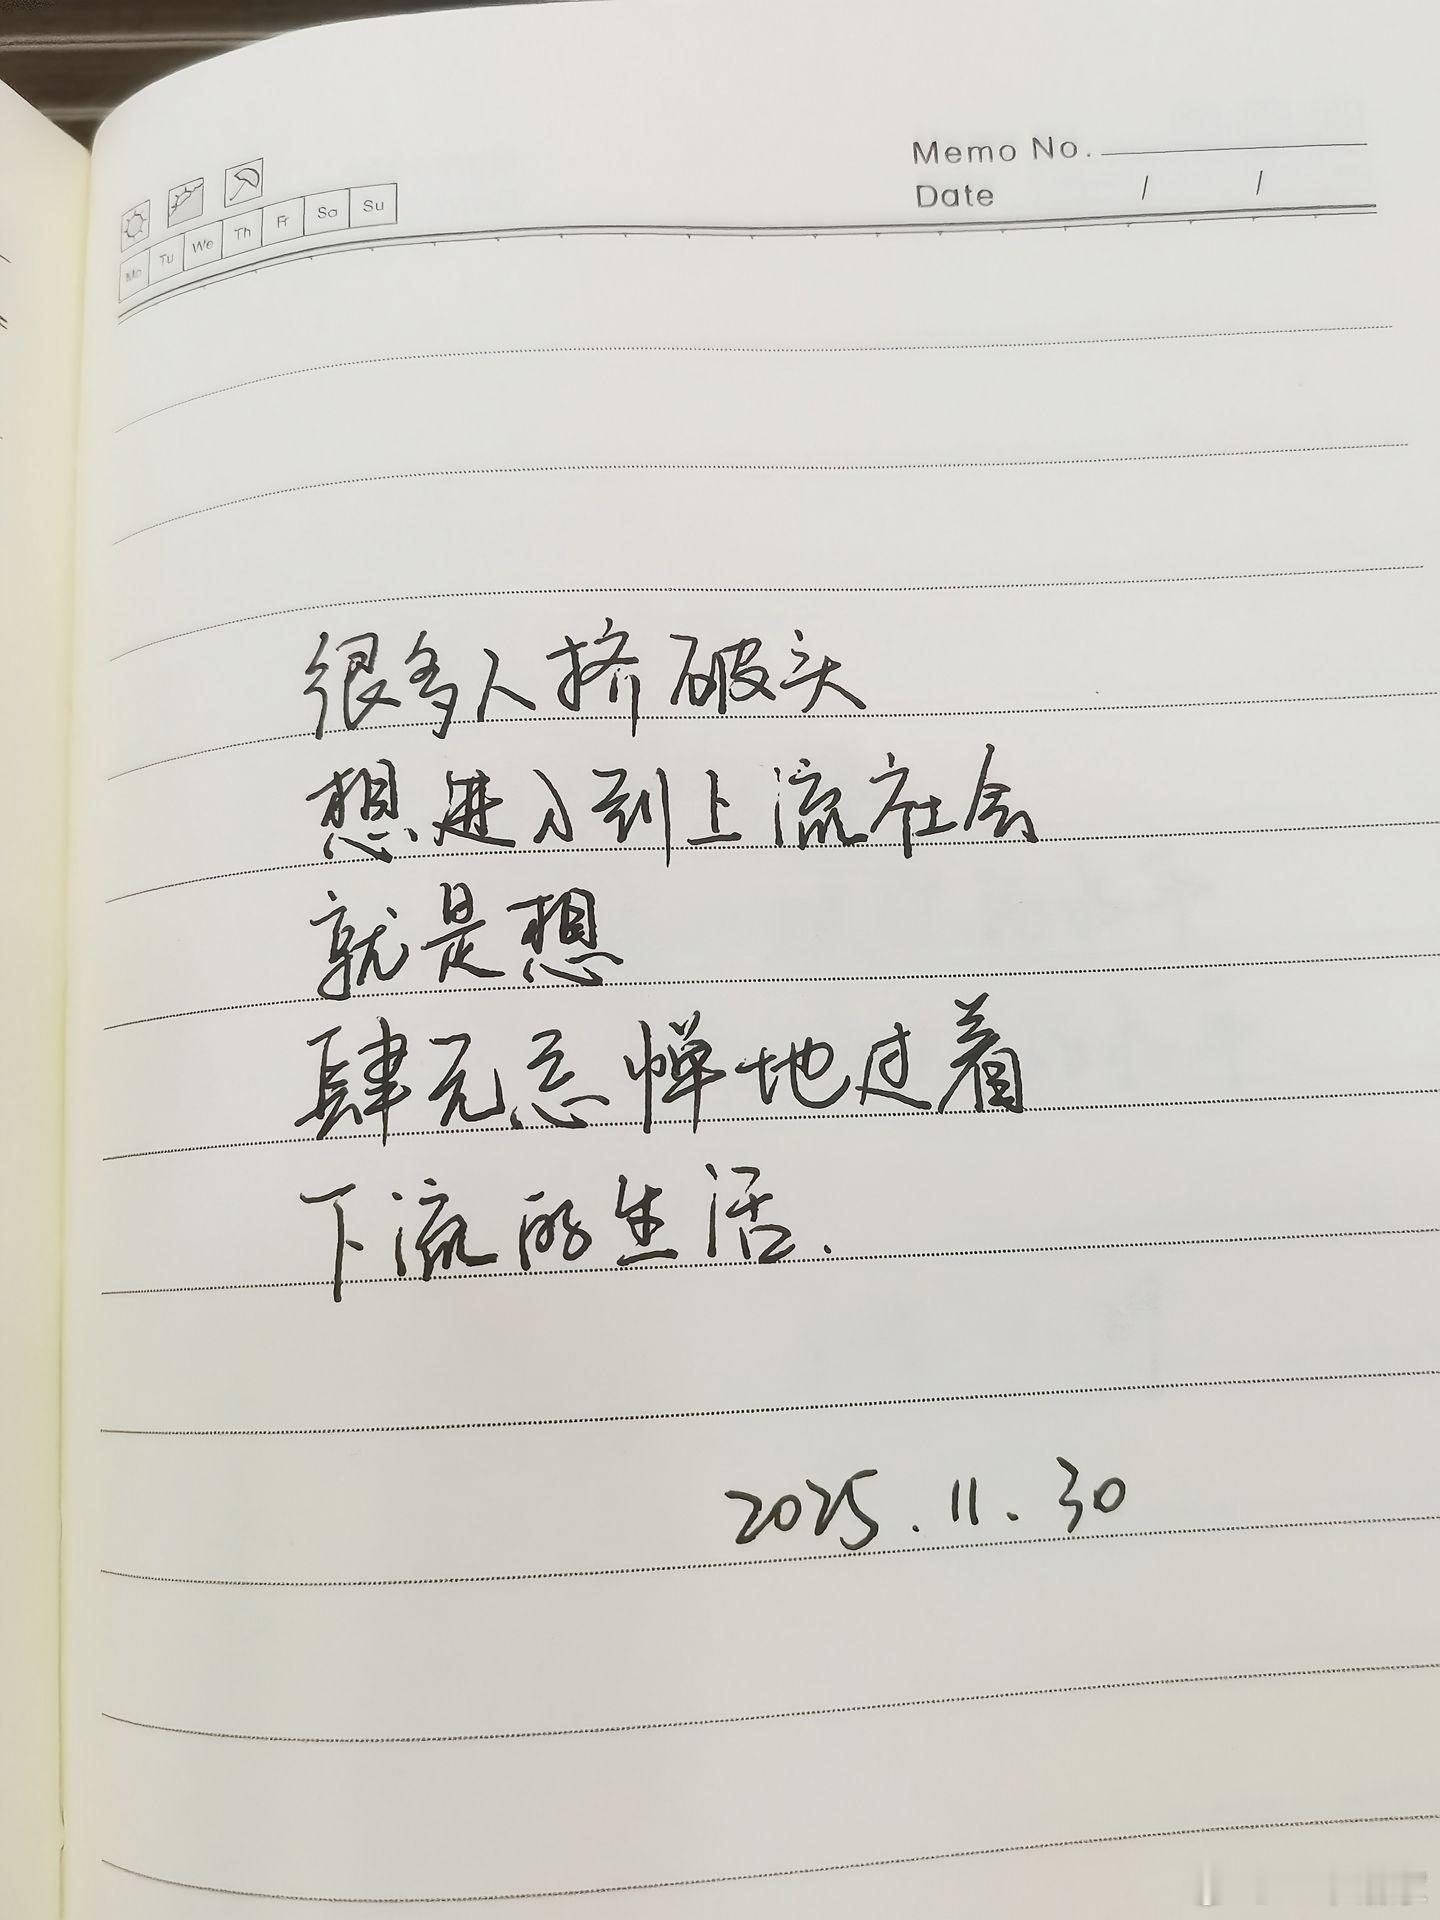 Memo No.
Date / /
Mo Tu We Th Fr Sa Su
很多人挤破头
想进入到上流社会
就是想
肆无忌惮地过着
下流的生活.
2025.11.30